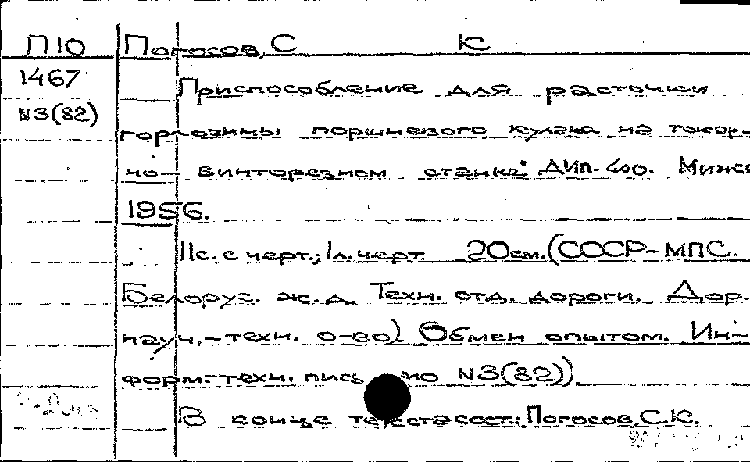 П10 Погосов, С К
1467 Приспособление для расточки
N3(82)
горловины поршневого кулака на токар-
но- винторезном станке ДИП-400. Минск
1956.
11с. с черт.; 1л. черт 20см. (СССР-МПС.
Белорус. ж.д. Техн. отд. дороги. Дор.
науч.-техн. о-во) Обмен опытом. Ин-
форм.-техн. письмо N3(82))
В конце текста сост.: Погосов, С.К.